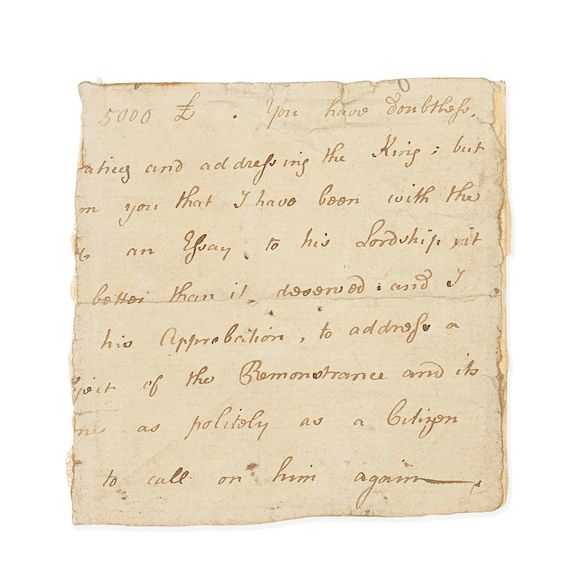 5000 £ . You have doubtless,
and addressing the King ; but
you that I have been with the
an Essay to his Lordship, it
better than it deserved . and I
his Approbation , to address a
of the Remonstrance and its
as politely as a Citizen
to call on him again